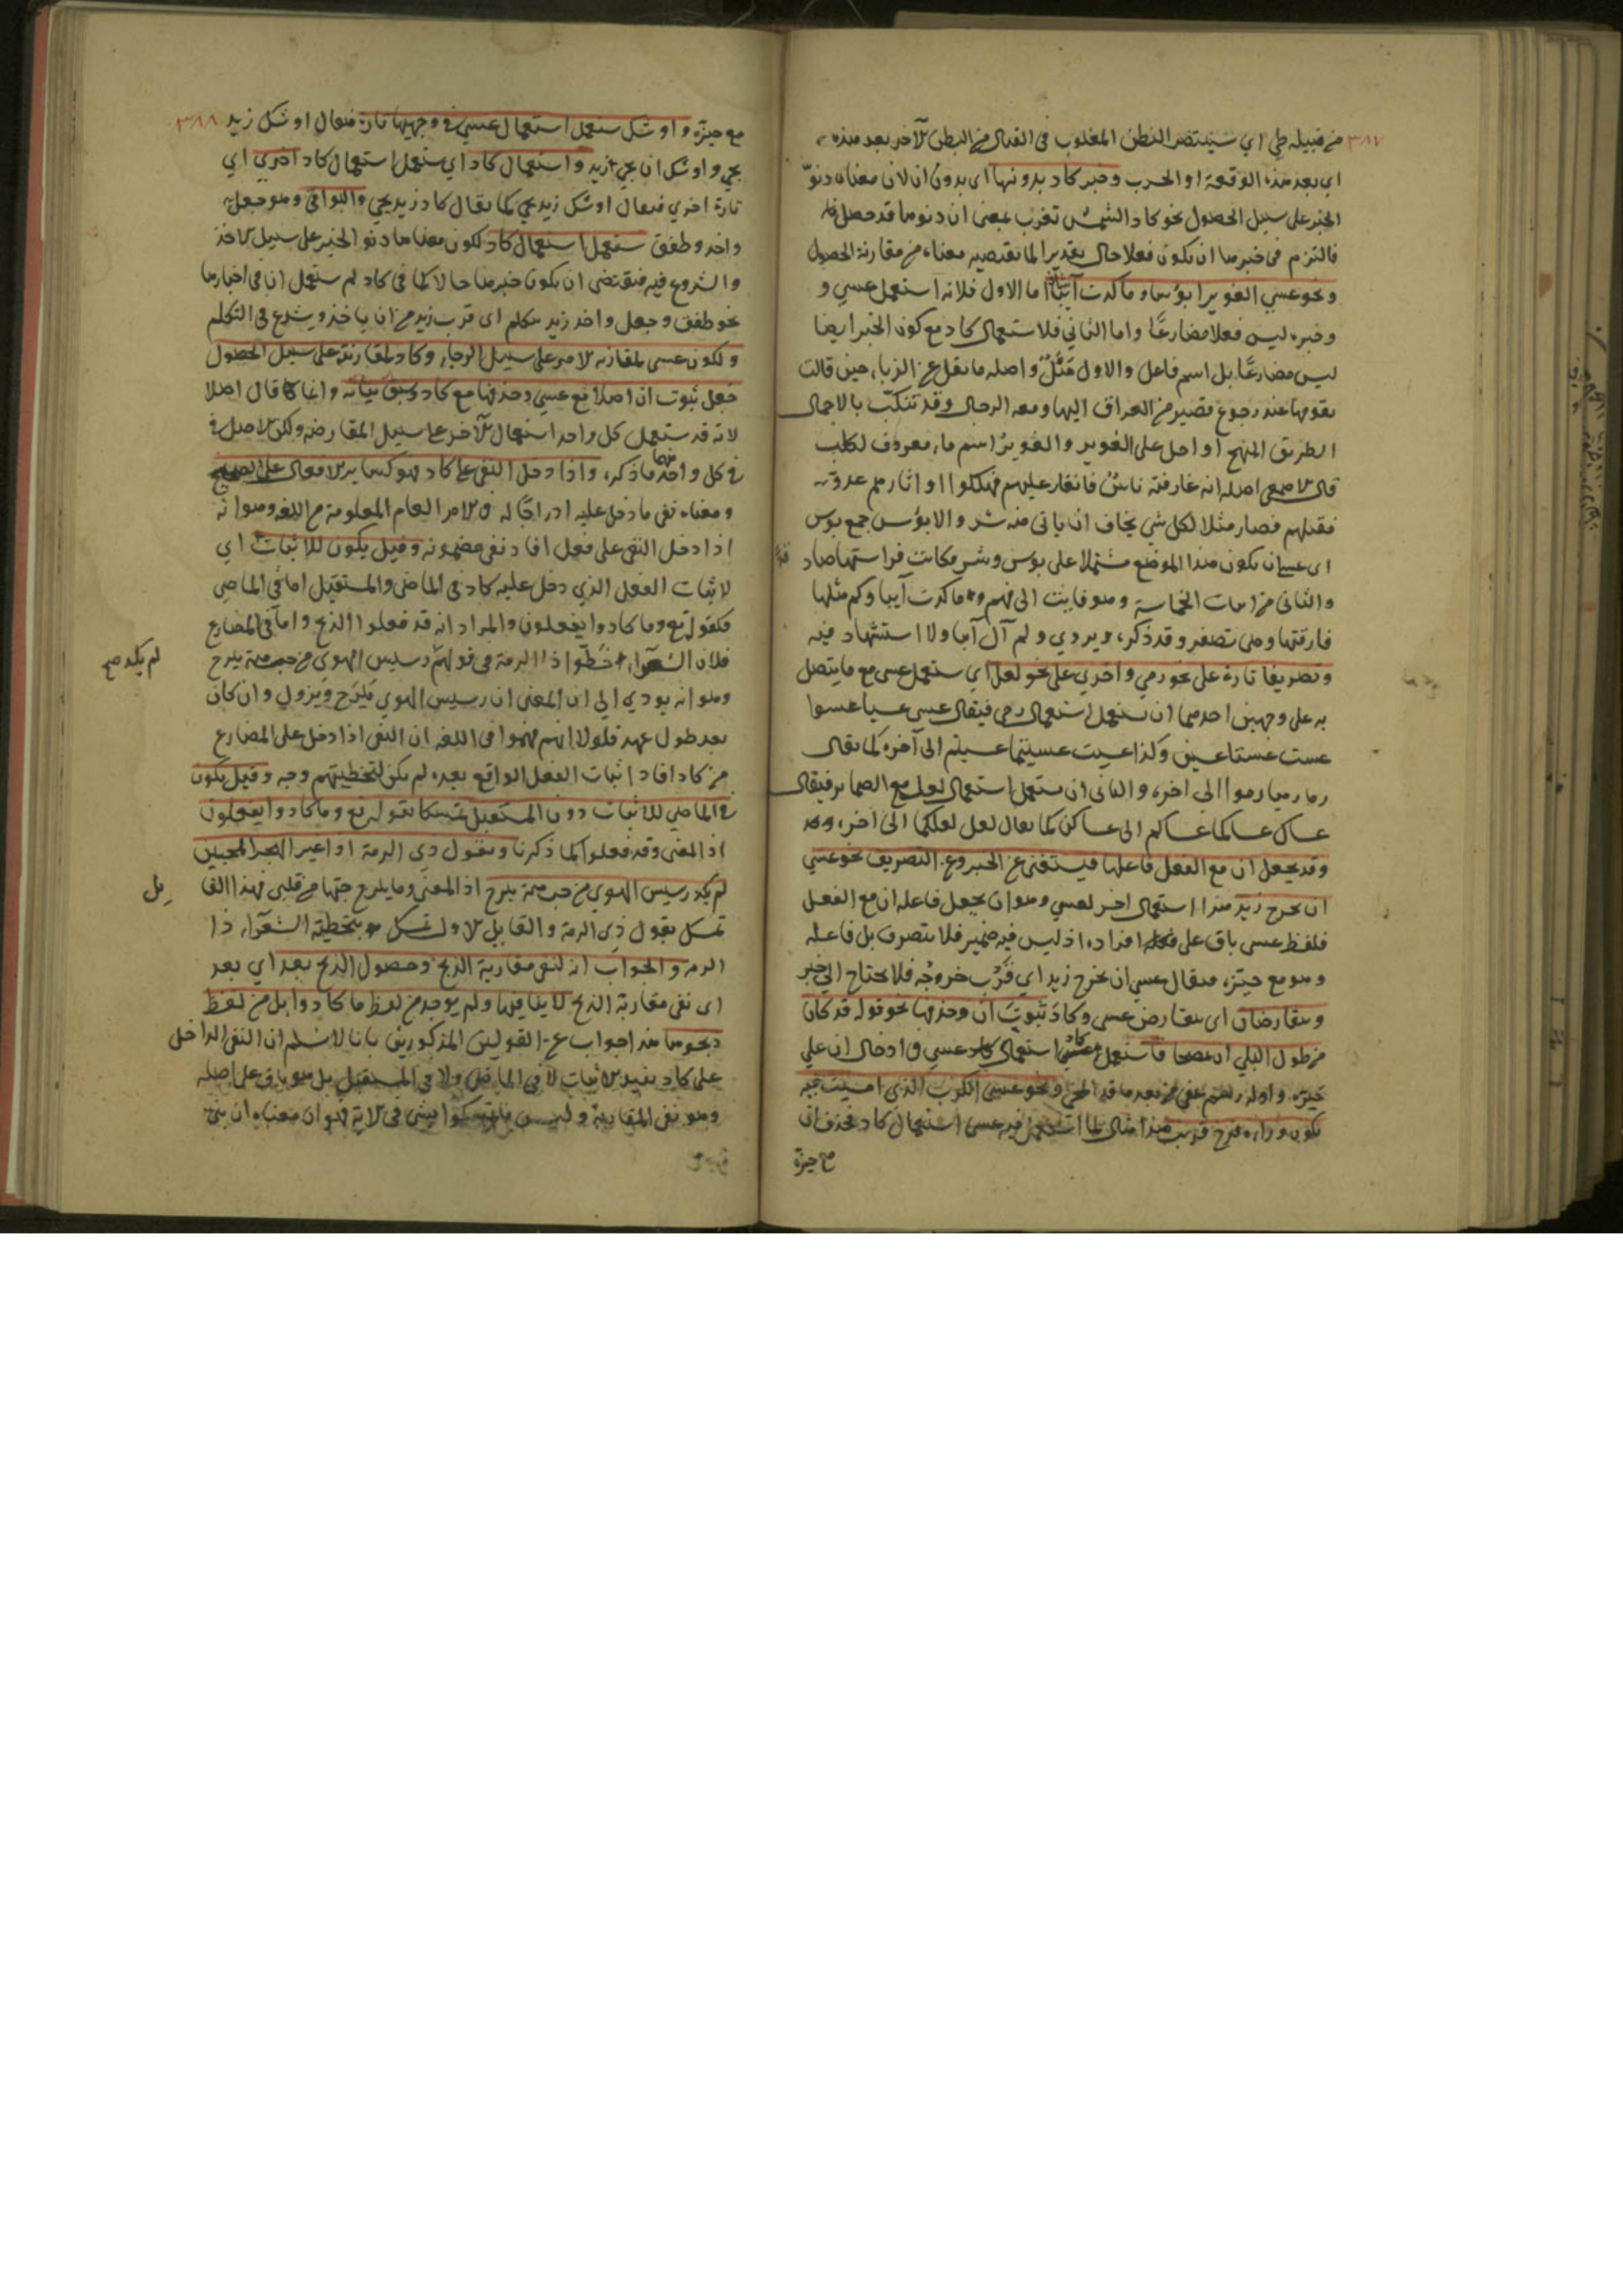 ٣٨٧ من قبيلة طي اي سينتصر البطن المغلوب في القتال من البطن الآخر بعد هذه
اي بعد هذه الوقعة او الحرب وخبر كاد بدونها اى بدون ان لان معناه دنوّ
الخبر على سبيل الحصول نحو كاد الشمس تغرب بمعنى ان دنوها قد حصل
فالتزم في خبرها ان يكون فعلا حالا تقديرا لما تقتضيه معناه من مقارنة الحصول
ونحو عسي الغوير ابؤسا وما كدت آئبا اما الاول فلانه استعمل عسي و
وخبره ليس فعلا مضارعًا واما الثاني فلاستعمال كاد مع كون الخبر ايضا
ليس مضارعًا بل اسم فاعل والاول مَثَلٌ واصله ما نقل عن الزباء حين قالت
لقومها عند رجوع قصير من العراق اليها ومعه الرجال وقد تنكّب بالاجمال
الطريق المنهج او احل على الغوير والغوير اسم ماء معروف لكلب
قال الاصمعى اصله انه غار فيه ناسٌ فانهار عليهم فهلكوا او اتارهم عدوّ
فقتلهم فصار مثلا لكل شي يخاف ان ياتى منه شر والابؤس جمع بوس
اى عسى ان يكون هذا الموضع مشتملا على بوس وشر وكانت فراستها صادقة
والثانى من ابيات الحماسة وهو فابت الى فهم وما كدت آيبا وكم مثلها
فارقتها وهى تصفر وقد ذكره ويروي ولم آل آبا ولا استشهاد فيه
وتصريفا تارة على نحو رمي واخري على نحو لعل اي يستعمل عسى مع ما يتصل
به على وجهين احدهما ان يستعمل استعمال رمى فيقال عسى عسيا عسوا
عست عستا عسين وكذا عسيت عسيتما عسيتم الى آخره كما يقال
رما رميا رموا الى اخره والثانى ان يستعمل استعمال لعل مع الضمائر فيقال
عساك عساكما عساكم الى عساكن كما يقال لعل لعلكما الى اخره
وقد يجعل ان مع الفعل فاعلها فيستغنى عن الخبر وعن التصريف نحو عسي
ان يخرج زيد هذا استعمال اخر لعسي وهو ان يجعل فاعله ان مع الفعل
فلفظ عسى باق على افراده اذ ليس فيه ضمير فلا يتصرف بل فاعله
وهو مع حيّزه فيقال عسي ان يخرج زيد اي قَرُب خروجُه فلا يحتاج الى خبر
ويتقارضان اى يتقارض عسى وكاد ثبوتَ ان وحذفها نحو قوله قد كاد
من طول البلي ان يمصحا فاستعمل كاد استعمال عسي في ادخال ان على
خبره واوله رسم عفى من بعد ما قد انمحى ونحو عسى الكرب الذي امسيت فيه
يكون وراءه فرج قريب هذا مثال لما استعمل فيه عسى استعمال كاد بحذف ان
مع حيزه
مع حيزه واوشك يستعمل استعمال عسي في وجهيها تارة فيقال اوشك زيد ٣٨٨
يجي واوشك ان يجي زيد واستعمال كاد اي يستعمل استعمال كاد اخري اي
تارة اخري فيقال اوشك زيد يجي كما يقال كاد زيد يجي والبواقي وهو جعل
واخذ وطفق يستعمل استعمال كاد لكون معناها دنو الخبر على سبيل الاخذ
والشروع فيه فيقتضى ان يكون خبرها حالا كما في كاد لم يستعمل ان في اخبارها
نحو طفق وجعل واخذ زيد يتكلم اى قرب زيد من ان ياخذ ويشرع في التكلم
ولكون عسى لمقاربة الامر على سبيل الرجاء وكاد لمقاربته على سبيل الحصول
جعل ثبوت ان اصلا مع عسى وحذفها مع كاد وسبق بيانه وانما قال اصلا
لانه قد يستعمل كل واحد استعمال الآخر على سبيل المقارضة ولكن الاصل
في كل واحد منهما ما ذكره واذا دخل النفي على كاد فهو كسائر الافعال على الصحيح
ومعناه نفى ما دخل عليه ادراجًا له في الامر العام المعلومة من اللغه وهو انه
اذا دخل النفى على فعل افاد نفى مضمونه وقيل يكون للاثبات اي
لاثبات الفعل الذي دخل عليه كاد في الماضى والمستقبل اما في الماضى
فكقوله تع وما كادوا يفعلون والمراد انه قد فعلوا الذبح واما في المضارع
فلان الشعراء خطّوا ذا الرمة في قوله رسيس الهوي من حب مية يبرح
لم يكد صح
وهو انه يودي الى ان المعنى ان رسيس الهوي يَبْرَح ويزول وان كان
بعد طول عهد فلولا انهم فهموا في اللغه ان النفى اذا دخل على المضارع
من كاد افاد اثبات الفعل الواقع بعده لم يكن لتخطيتهم وجه وقيل يكون
في الماضي للاثبات دون المستقبل تمسكا بقوله تع وما كادوا يفعلون
اذ المعنى وقد فعلوا كما ذكرنا وبقول ذي الرمة اذا غير الهجر المحبين
لم يكد رسيس الهوي من حب مية يبرح اذ المعنى وما يبرح حبها من قلبى فهذا القا
يل
تمسك بقول ذى الرمة والقايل الاول تمسك بتخطية الشعراء ذا
الرمة والجواب انه لنفى مقاربة الذبح وحصول الذبح بعد اي بعد
اى نفى مقاربة الذبح لا ينافيها ولم يوجد من لفظ ما كادوا بل من لفظ
ذبحوها هذا جواب عن القولين المذكورين بانا لا نسلم ان النفى الداخل
على كاد يفيد الاثبات لا في الماضي ولا في المستقبل بل هو باق على اصله
وهو نفى المقاربة وليس ما تمسكوا بشى في الاية فهو ان معناه ان بنى